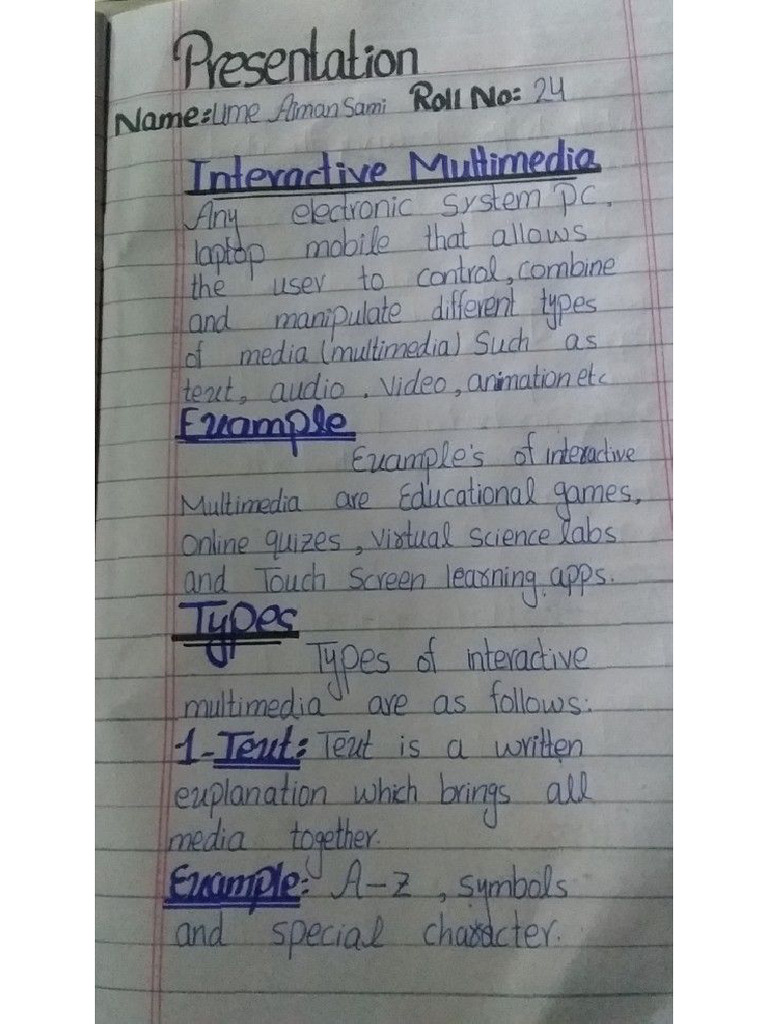 Presentation
Name: Ume Aiman Sami Roll No: 24
Interactive Multimedia
Any electronic system pc,
laptop mobile that allows
the user to control, combine
and manipulate different types
of media (multimedia) Such as
text, audio, Video, animation etc
Example
Example's of interactive
Multimedia are Educational games,
Online quizes, Virtual science labs
and Touch Screen learning apps.
Types
Types of interactive
multimedia are as follows:
1-Text: Text is a written
explanation which brings all
media together.
Example: A-Z, symbols
and special character.